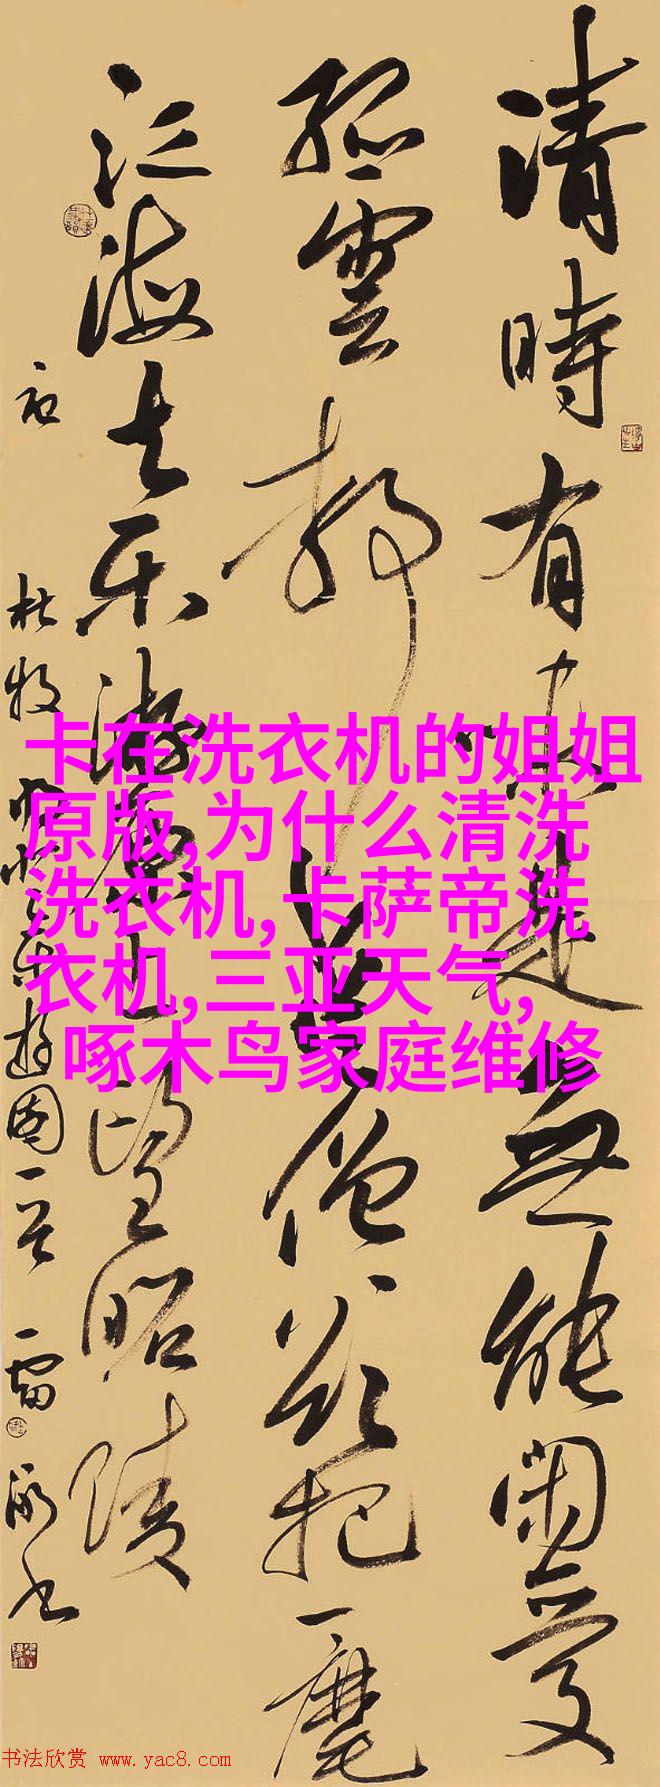 清時有味是無能閑愛
孤雲静愛僧欲把一麾
江海去乐游原上望昭陵
杜牧
卡在洗衣机的姐姐
原版,为什么清洗
洗衣机,卡萨帝洗
衣机,三亚天气,
啄木鸟家庭维修
书法欣赏 www.yac8.com